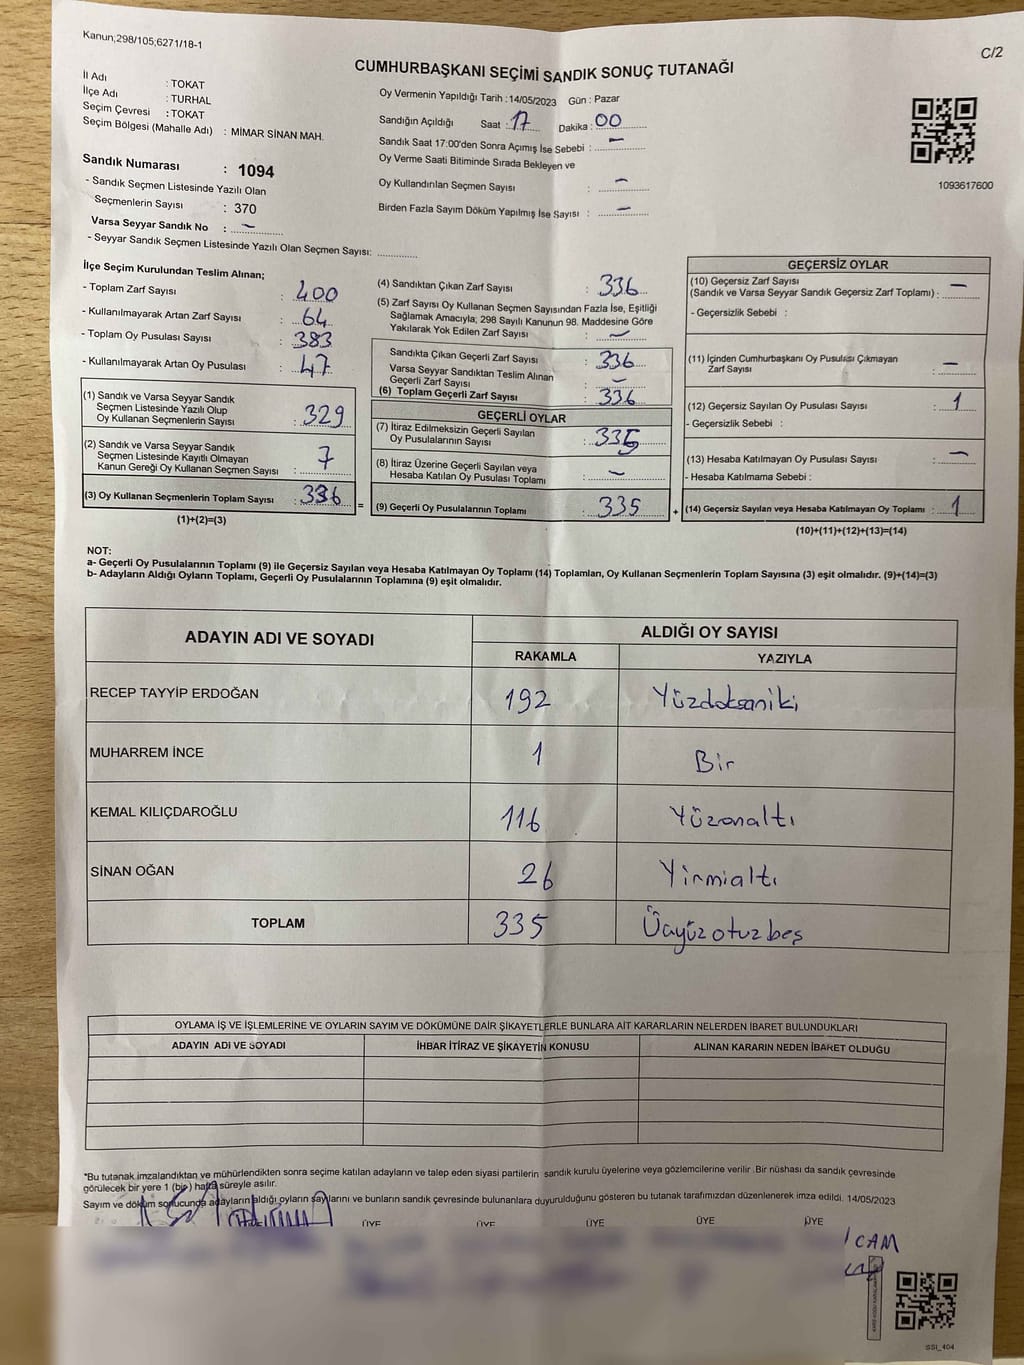 Kanun;298/105;6271/18-1
C/2
CUMHURBAŞKANI SEÇİMİ SANDIK SONUÇ TUTANAĞI
İl Adı : TOKAT
İlçe Adı : TURHAL
Seçim Çevresi : TOKAT
Seçim Bölgesi (Mahalle Adı) : MİMAR SİNAN MAH.
Sandık Numarası : 1094
- Sandık Seçmen Listesinde Yazılı Olan
Seçmenlerin Sayısı : 370
Varsa Seyyar Sandık No : –
- Seyyar Sandık Seçmen Listesinde Yazılı Olan Seçmen Sayısı:
Oy Vermenin Yapıldığı Tarih :14/05/2023 Gün : Pazar
Sandığın Açıldığı Saat : 17 Dakika : 00
Sandık Saat 17:00'den Sonra Açımış İse Sebebi : –
Oy Verme Saati Bitiminde Sırada Bekleyen ve
Oy Kullandırılan Seçmen Sayısı : –
Birden Fazla Sayım Döküm Yapılmış İse Sayısı : –
1093617600
İlçe Seçim Kurulundan Teslim Alınan;
- Toplam Zarf Sayısı : 400
- Kullanılmayarak Artan Zarf Sayısı : 64
- Toplam Oy Pusulası Sayısı : 383
- Kullanılmayarak Artan Oy Pusulası : 47
(1) Sandık ve Varsa Seyyar Sandık
Seçmen Listesinde Yazılı Olup
Oy Kullanan Seçmenlerin Sayısı : 329
(2) Sandık ve Varsa Seyyar Sandık
Seçmen Listesinde Kayıtlı Olmayan
Kanun Gereği Oy Kullanan Seçmen Sayısı : 7
(3) Oy Kullanan Seçmenlerin Toplam Sayısı : 336 =
(1)+(2)=(3)
(4) Sandıktan Çıkan Zarf Sayısı : 336
(5) Zarf Sayısı Oy Kullanan Seçmen Sayısından Fazla İse, Eşitliği
Sağlamak Amacıyla; 298 Sayılı Kanunun 98. Maddesine Göre
Yakılarak Yok Edilen Zarf Sayısı : –
Sandıkta Çıkan Geçerli Zarf Sayısı : 336
Varsa Seyyar Sandıktan Teslim Alınan
Geçerli Zarf Sayısı : –
(6) Toplam Geçerli Zarf Sayısı : 336
GEÇERLİ OYLAR
(7) İtiraz Edilmeksizin Geçerli Sayılan
Oy Pusulalarının Sayısı : 335
(8) İtiraz Üzerine Geçerli Sayılan veya
Hesaba Katılan Oy Pusulası Toplamı : –
(9) Geçerli Oy Pusulalarının Toplamı : 335 +
GEÇERSİZ OYLAR
(10) Geçersiz Zarf Sayısı
(Sandık ve Varsa Seyyar Sandık Geçersiz Zarf Toplamı) : –
- Geçersizlik Sebebi :
(11) İçinden Cumhurbaşkanı Oy Pusulası Çıkmayan
Zarf Sayısı : –
(12) Geçersiz Sayılan Oy Pusulası Sayısı : 1
- Geçersizlik Sebebi :
(13) Hesaba Katılmayan Oy Pusulası Sayısı : –
- Hesaba Katılmama Sebebi :
(14) Geçersiz Sayılan veya Hesaba Katılmayan Oy Toplamı : 1
(10)+(11)+(12)+(13)=(14)
NOT:
a- Geçerli Oy Pusulalarının Toplamı (9) ile Geçersiz Sayılan veya Hesaba Katılmayan Oy Toplamı (14) Toplamları, Oy Kullanan Seçmenlerin Toplam Sayısına (3) eşit olmalıdır. (9)+(14)=(3)
b- Adayların Aldığı Oyların Toplamı, Geçerli Oy Pusulalarının Toplamına (9) eşit olmalıdır.
ADAYIN ADI VE SOYADI ALDIĞI OY SAYISI
RAKAMLA YAZIYLA
RECEP TAYYİP ERDOĞAN 192 Yüzdoksaniki
MUHARREM İNCE 1 Bir
KEMAL KILIÇDAROĞLU 116 Yüzonaltı
SİNAN OĞAN 26 Yirmialtı
TOPLAM 335 Üçyüzotuzbeş
OYLAMA İŞ VE İŞLEMLERİNE VE OYLARIN SAYIM VE DÖKÜMÜNE DAİR ŞİKAYETLERLE BUNLARA AİT KARARLARIN NELERDEN İBARET BULUNDUKLARI
ADAYIN ADI VE SOYADI İHBAR İTİRAZ VE ŞİKAYETİN KONUSU ALINAN KARARIN NEDEN İBARET OLDUĞU
*Bu tutanak imzalandıktan ve mühürlendikten sonra seçime katılan adayların ve talep eden siyasi partilerin sandık kurulu üyelerine veya gözlemcilerine verilir .Bir nüshası da sandık çevresinde
görülecek bir yere 1 (bir) hafta süreyle asılır.
Sayım ve döküm sonucunda adayların aldığı oyların sayılarını ve bunların sandık çevresinde bulunanlara duyurulduğunu gösteren bu tutanak tarafımızdan düzenlenerek imza edildi. 14/05/2023
ÜYE ÜYE ÜYE ÜYE ÜYE
CAM
SSI_404